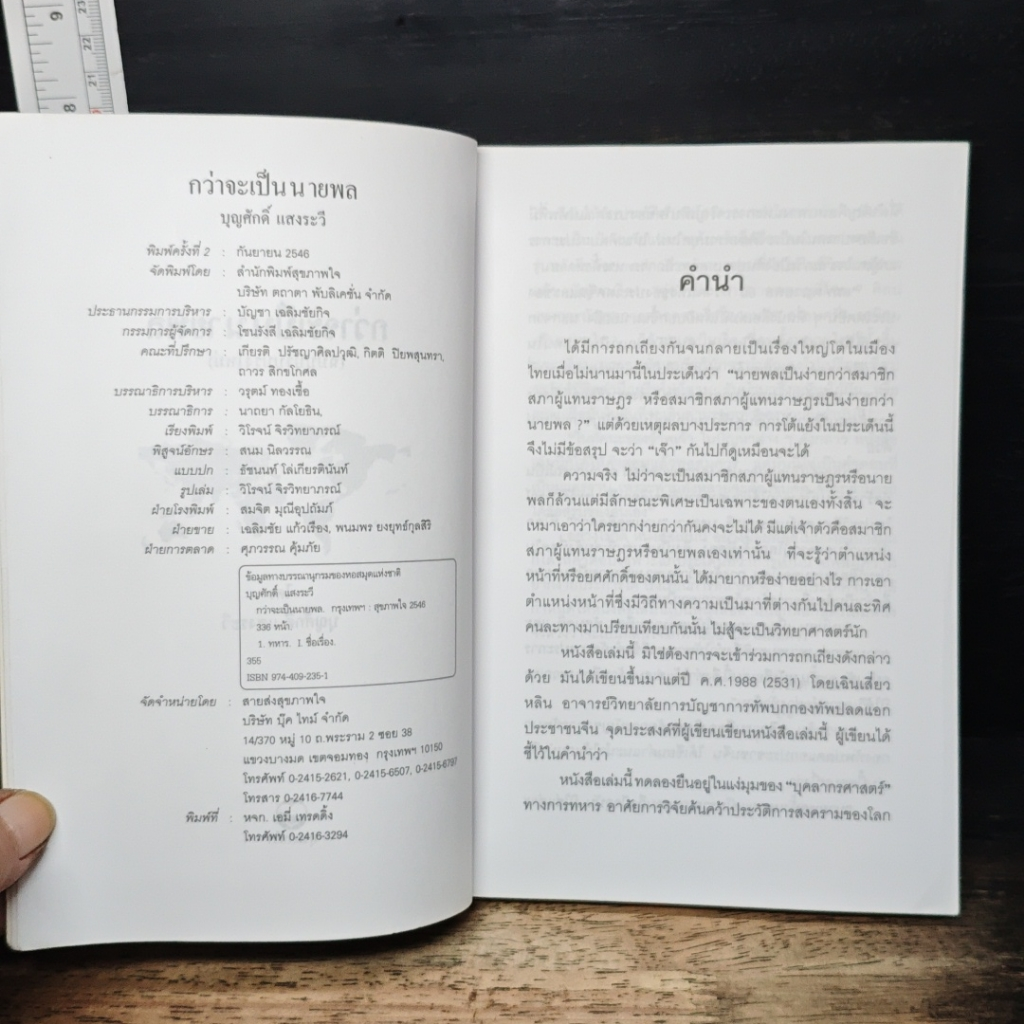 9
23
22
21
8
กว่าจะเป็นนายพล
บุญศักดิ์ แสงระวี
พิมพ์ครั้งที่ 2 : กันยายน 2546
จัดพิมพ์โดย : สำนักพิมพ์สุขภาพใจ
บริษัท ตถาตา พับลิเคชั่น จำกัด
ประธานกรรมการบริหาร : บัญชา เฉลิมชัยกิจ
กรรมการผู้จัดการ : โชนรังสี เฉลิมชัยกิจ
คณะที่ปรึกษา : เกียรติ ปรัชญาศิลปวุฒิ, กิตติ ปิยพสุนทรา,
ถาวร สิกขโกศล
บรรณาธิการบริหาร : วรุตม์ ทองเชื้อ
บรรณาธิการ : นาถยา กัลโยธิน,
เรียงพิมพ์ : วิโรจน์ จิรวิทยาภรณ์
พิสูจน์อักษร : สนม นิลวรรณ
แบบปก : ธัชนนท์ โล่เกียรตินันท์
รูปเล่ม : วิโรจน์ จิรวิทยาภรณ์
ฝ่ายโรงพิมพ์ : สมจิต มุณีอุปถัมภ์
ฝ่ายขาย : เฉลิมชัย แก้วเรื่อง, พนมพร ยงยุทธ์กุลสิริ
ฝ่ายการตลาด : ศุภวรรณ คุ้มภัย
ข้อมูลทางบรรณานุกรมของหอสมุดแห่งชาติ
บุญศักดิ์ แสงระวี
กว่าจะเป็นนายพล. กรุงเทพฯ : สุขภาพใจ 2546
336 หน้า.
1. ทหาร. I. ชื่อเรื่อง.
355
ISBN 974-409-235-1
จัดจำหน่ายโดย : สายส่งสุขภาพใจ
บริษัท บุ๊ค ไทม์ จำกัด
14/370 หมู่ 10 ถ.พระราม 2 ซอย 38
แขวงบางมด เขตจอมทอง กรุงเทพฯ 10150
โทรศัพท์ 0-2415-2621, 0-2415-6507, 0-2415-6797
โทรสาร 0-2416-7744
พิมพ์ที่ : หจก. เอมี่ เทรดดิ้ง
โทรศัพท์ 0-2416-3294
คำนำ
ได้มีการถกเถียงกันจนกลายเป็นเรื่องใหญ่โตในเมือง
ไทยเมื่อไม่นานมานี้ในประเด็นว่า “นายพลเป็นง่ายกว่าสมาชิก
สภาผู้แทนราษฎร หรือสมาชิกสภาผู้แทนราษฎรเป็นง่ายกว่า
นายพล ?” แต่ด้วยเหตุผลบางประการ การโต้แย้งในประเด็นนี้
จึงไม่มีข้อสรุป จะว่า “เจ๊า” กันไปก็ดูเหมือนจะได้
ความจริง ไม่ว่าจะเป็นสมาชิกสภาผู้แทนราษฎรหรือนาย
พลก็ล้วนแต่มีลักษณะพิเศษเป็นเฉพาะของตนเองทั้งสิ้น จะ
เหมาเอาว่าใครยากง่ายกว่ากันคงจะไม่ได้ มีแต่เจ้าตัวคือสมาชิก
สภาผู้แทนราษฎรหรือนายพลเองเท่านั้น ที่จะรู้ว่าตำแหน่ง
หน้าที่หรือยศศักดิ์ของตนนั้น ได้มายากหรือง่ายอย่างไร การเอา
ตำแหน่งหน้าที่ซึ่งมีวิถีทางความเป็นมาที่ต่างกันไปคนละทิศ
คนละทางมาเปรียบเทียบกันนั้น ไม่สู้จะเป็นวิทยาศาสตร์นัก
หนังสือเล่มนี้ มิใช่ต้องการจะเข้าร่วมการถกเถียงดังกล่าว
ด้วย มันได้เขียนขึ้นมาแต่ปี ค.ศ.1988 (2531) โดยเฉินเสี่ยว
หลิน อาจารย์วิทยาลัยการบัญชาการทัพบกกองทัพปลดแอก
ประชาชนจีน จุดประสงค์ที่ผู้เขียนเขียนหนังสือเล่มนี้ ผู้เขียนได้
ชี้ไว้ในคำนำว่า
หนังสือเล่มนี้ ทดลองยืนอยู่ในแง่มุมของ “บุคลากรศาสตร์”
ทางการทหาร อาศัยการวิจัยค้นคว้าประวัติการสงครามของโลก